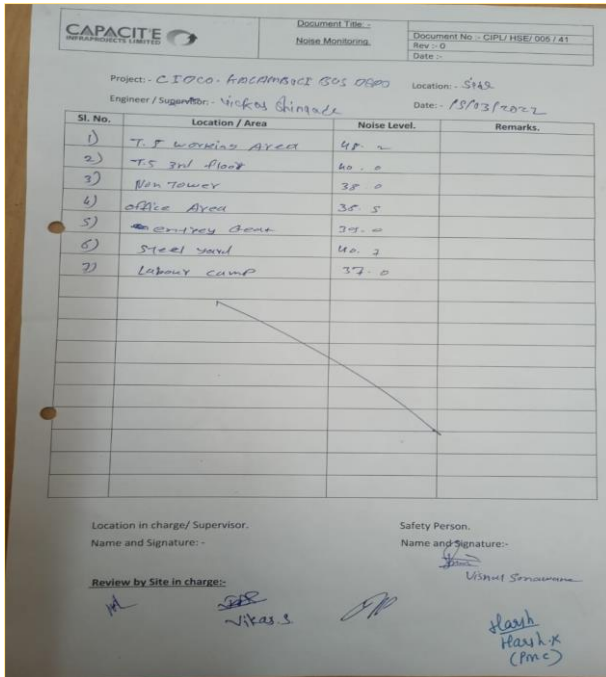 CAPACIT'E
INFRAPROJECTS LIMITED
Document Title: -
Noise Monitoring.
Document No :- CIPL/ HSE/ 005 / 41
Rev :- 0
Date :-
Project: - CIDCO - BUS DEPO
Location: - Site
Engineer / Supervisor: - Vickas Shingade
Date: - 15/03/2022
Sl. No. Location / Area Noise Level. Remarks.
1) T.5 working Area 48.2
2) T.5 3rd floor 40.0
3) Non Tower 38.0
4) office Area 38.5
5) entrey 39.0
6) Steel yard 40.7
7) Labour camp 37.0
Location in charge/ Supervisor.
Safety Person.
Name and Signature: -
Name and Signature:-
Vishnu Sonawane
Review by Site in charge:-
Vikas.S
Harsh
Harsh.K
(PMC)